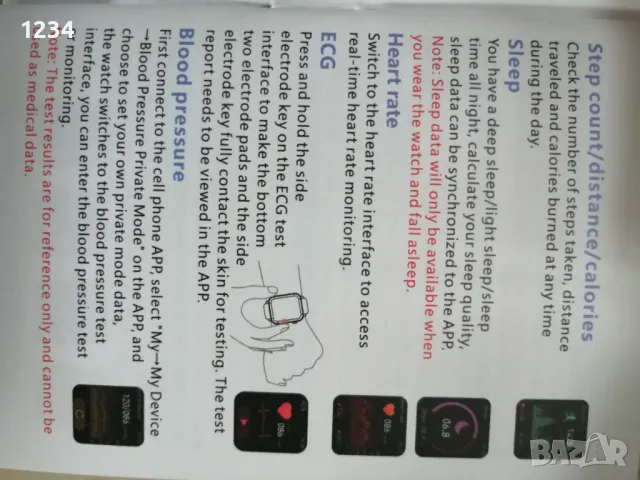 1234
Step count/distance/calories
Check the number of steps taken, distance
traveled and calories burned at any time
during the day.
Sleep
You have a deep sleep/light sleep/sleep
time all night, calculate your sleep quality,
sleep data can be synchronized to the APP.
Note: Sleep data will only be available when
you wear the watch and fall asleep.
06.8
Heart rate
Switch to the heart rate interface to access
real-time heart rate monitoring.
086
ECG
Press and hold the side
electrode key on the ECG test
interface to make the bottom
two electrode pads and the side
electrode key fully contact the skin for testing. The test
report needs to be viewed in the APP.
086
Blood pressure
First connect to the cell phone APP, select "My→My Device
→Blood Pressure Private Mode" on the APP, and
choose to set your own private mode data,
the watch switches to the blood pressure test
interface, you can enter the blood pressure test
monitoring.
120/086
Note: The test results are for reference only and cannot be
used as medical data.
BAZAR.bg